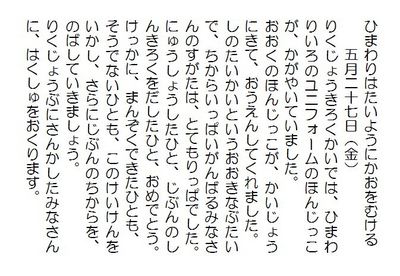 ひまわりはたいようにかおをむける
五月二十七日（金）
りくじょうきろくかいでは、ひまわ
りいろのユニフォームのほんじっこ
が、かがやいていました。
おおくのほんじっこが、かいじょう
にきて、おうえんしてくれました。
しのたいかいというおおきなぶたい
で、ちからいっぱいがんばるみなさ
んのすがたは、とてもりっぱでした。
にゅうしょうしたひと、じぶんのし
んきろくをだしたひと、おめでとう。
けっかに、まんぞくできたひとも、
そうでないひとも、このけいけんを
いかし、さらにじぶんのちからを、
のばしていきましょう。
りくじょうぶにさんかしたみなさん
に、はくしゅをおくります。